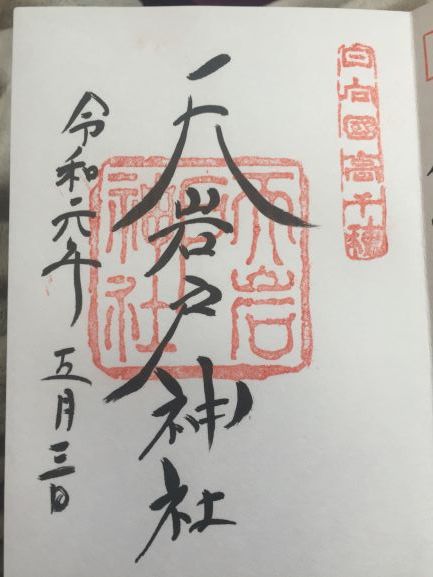 日向國高千穂
天岩戸神社
天岩戸神社
令和元年五月三日